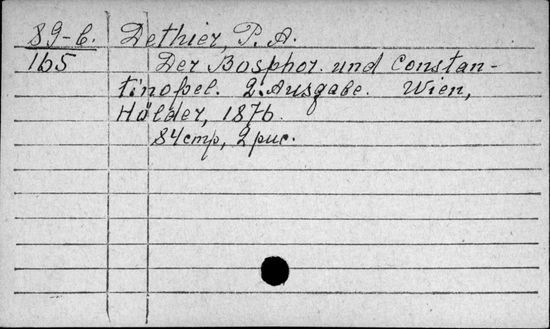 89-6. Dethier, P. A.
165 Der Bosphor. und Constan-
tinopel. 2. Ausgabe. Wien,
Hölder, 1876.
84 стр, 2 рис.